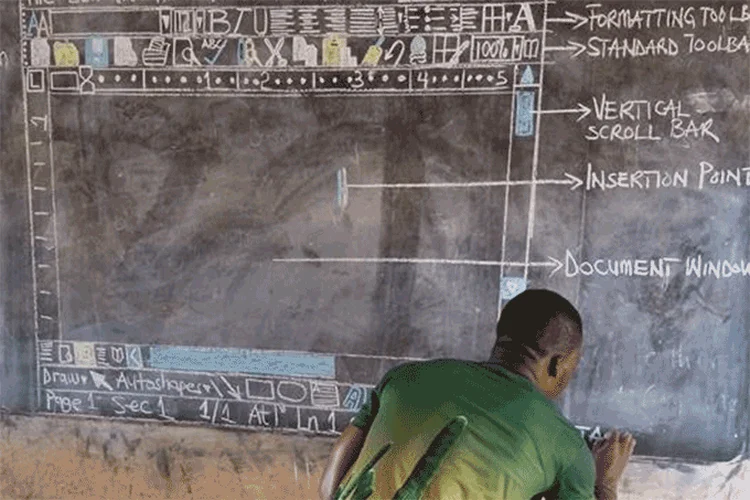 AA 12 B I U A
→ FORMATTING
ABC 100%
→ STANDARD
L 1 2 3 4 5
→ VERTICAL
SCROLL BAR
1
→ INSERTION POINT
→ DOCUMENT WINDOW
Draw Autoshapes A
Page 1 Sec 1 1/1 At 1" Ln 1
TA